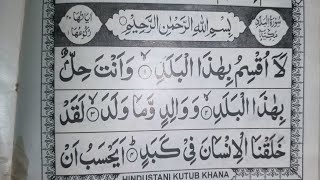 بِسْمِ اللهِ الرَّحْمٰنِ الرَّحِيْمِ
لَآ اُقْسِمُ بِهٰذَا الْبَلَدِ ۙ﴿۱﴾ وَاَنْتَ حِلٌّۢ
بِهٰذَا الْبَلَدِ ۙ﴿۲﴾ وَوَالِدٍ وَّمَا وَلَدَ ۙ﴿۳﴾ لَقَدْ
خَلَقْنَا الْاِنْسَانَ فِيْ كَبَدٍ ؕ﴿۴﴾ اَيَحْسَبُ اَنْ
HINDUSTANI KUTUB KHANA